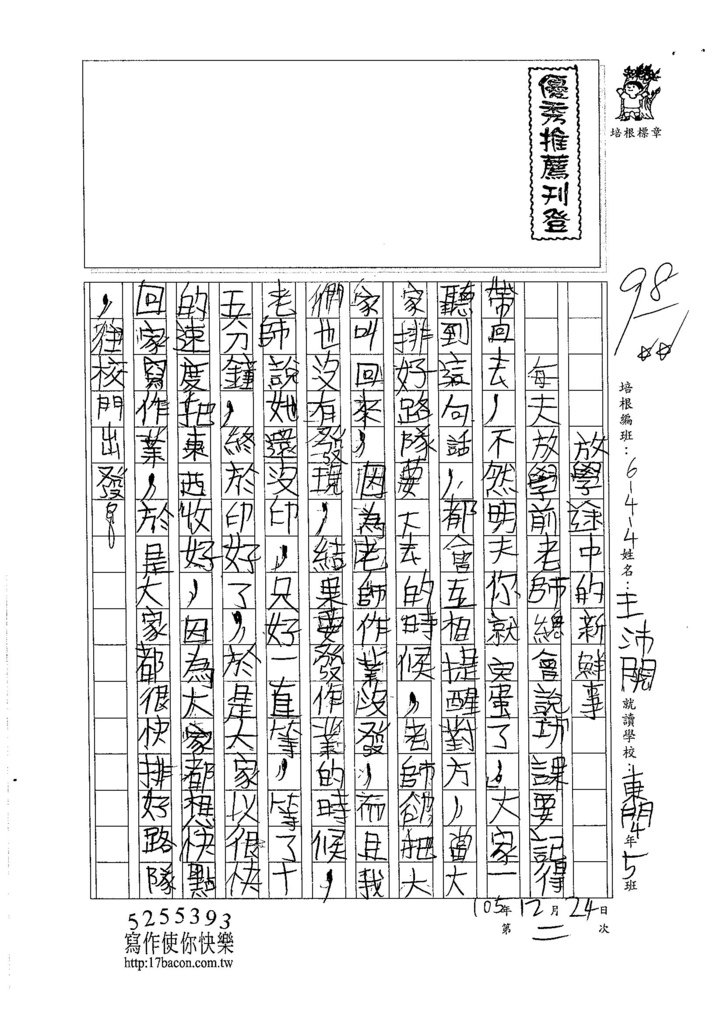 優秀推薦刊登
培根標章
98
培根編班：6-4-4 姓名：王沛 就讀學校：東門 4年5班
放學途中的新鮮事
每天放學前老師總會說功課要記得
帶回去，不然明天你就完蛋了，大家一
聽到這句話，都會互相提醒對方，當大
家排好路隊要大去的時候，老師卻把大
家叫回來，因為老師作業沒發，而且我
們也沒有發現，結果要發作業的時候，
老師說她還沒印，只好一直等，等了十
五分鐘，終於印好了，於是大家以很快
的速度把東西收好，因為大家都想快點
回家寫作業，於是大家都很快排好路隊
，往校門出發。
105年12月24日
第二次
5255393
寫作使你快樂
http:17bacon.com.tw